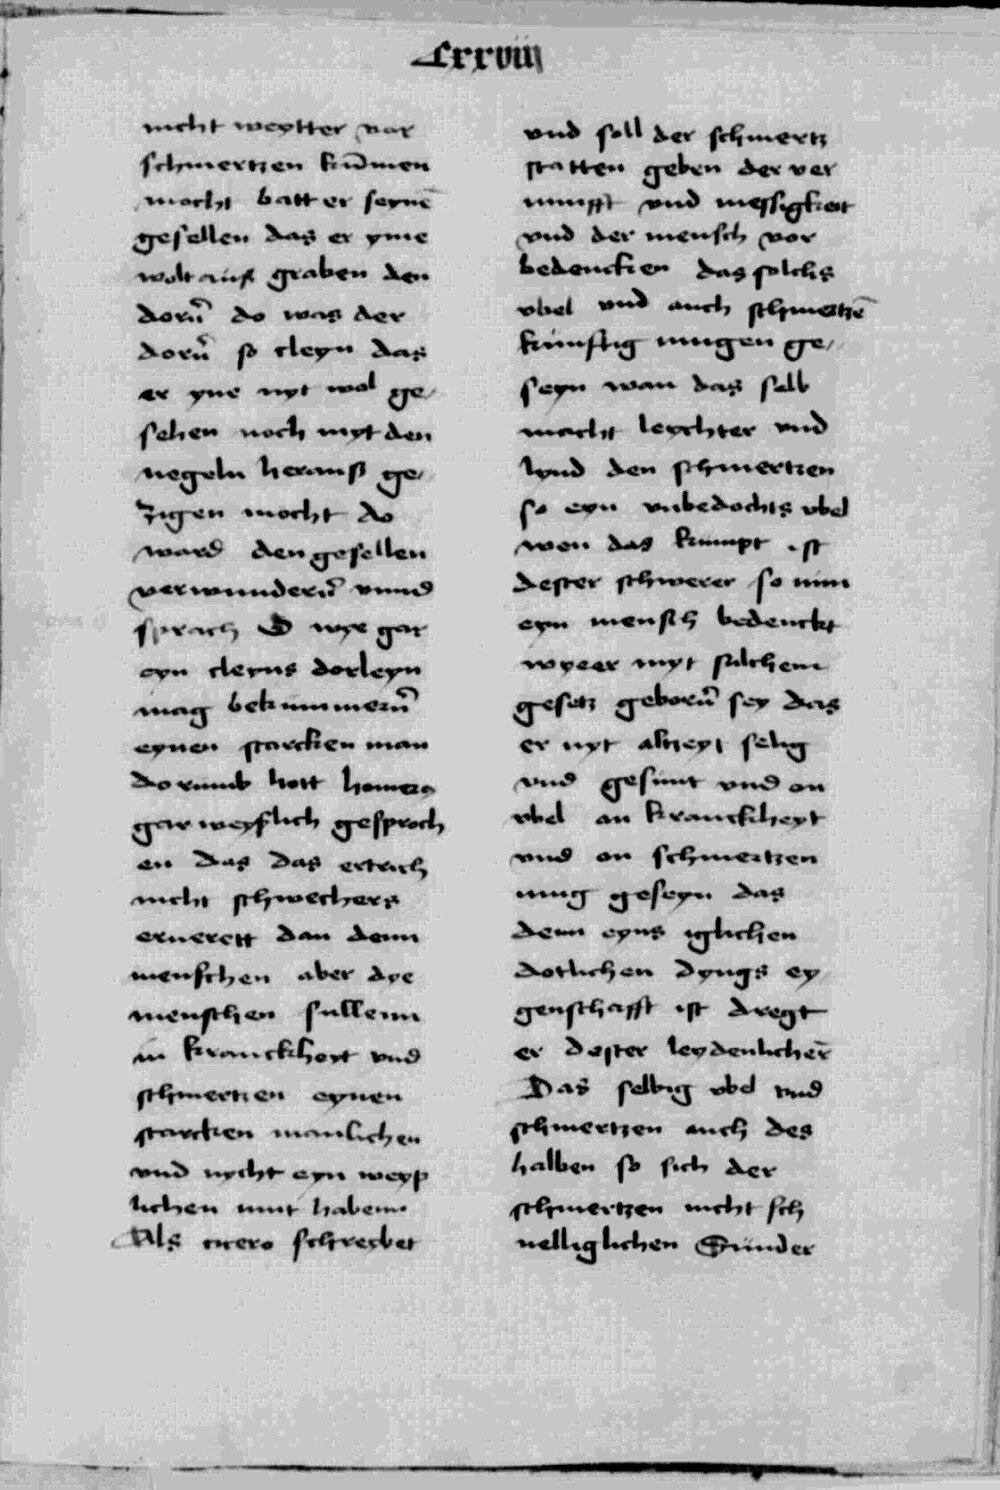 Lxxviij
nicht weytter vor
schmertzen kūmen
mocht batt er seynē
gesellen das er yme
wolt auß graben den
dorn̄ do was der
dorn̄ so cleyn das
er yne nyt wol ge/
sehen noch myt den
negeln herauß ge/
zigen mocht do
ward den gesellen
verwundern̄ vnnd
sprach O wye gar
eyn cleyns dorleyn
mag bekummern̄
eynen starcken man
dorumb hott homerꝰ
gar weyslich gesproch
en das das ertrich
nicht schwechers
ernerett dan denn
menschen aber dye
menschen sullenn
in kranckheyt vnd
schmertzen eynen
starcken manlichen
vnd nycht eyn weyp
lichen mut habenn
Als cicero schreybet
vnd soll der schmertz
statten geben der ver
nunfft vnd messigkeit
vnd der mensch vor
bedencken das solchs
vbel vnd auch schmertzē
kunfftig mugen ge/
seyn wan das selb
macht leychter vnd
lynd den schmertzen
so eyn vnbedochts vbel
wen das kumpt ist
dester schwerer so nun
eyn mensch bedenckt
wye er myt sulchem
gesetz geborn̄ sey das
er nyt altzeyt selig
vnd gesunt vnd on
vbel an kranckheyt
vnd on schmertzen
mug geseyn das
denn eyns iglichen
dotlichen dyngs ey/
genschafft ist dregt
er dester leydenlicher̄
Das selbig vbel vnd
schmertzen auch des
halben so sich der
schmertzen nicht sch
nelliglichen Sunder